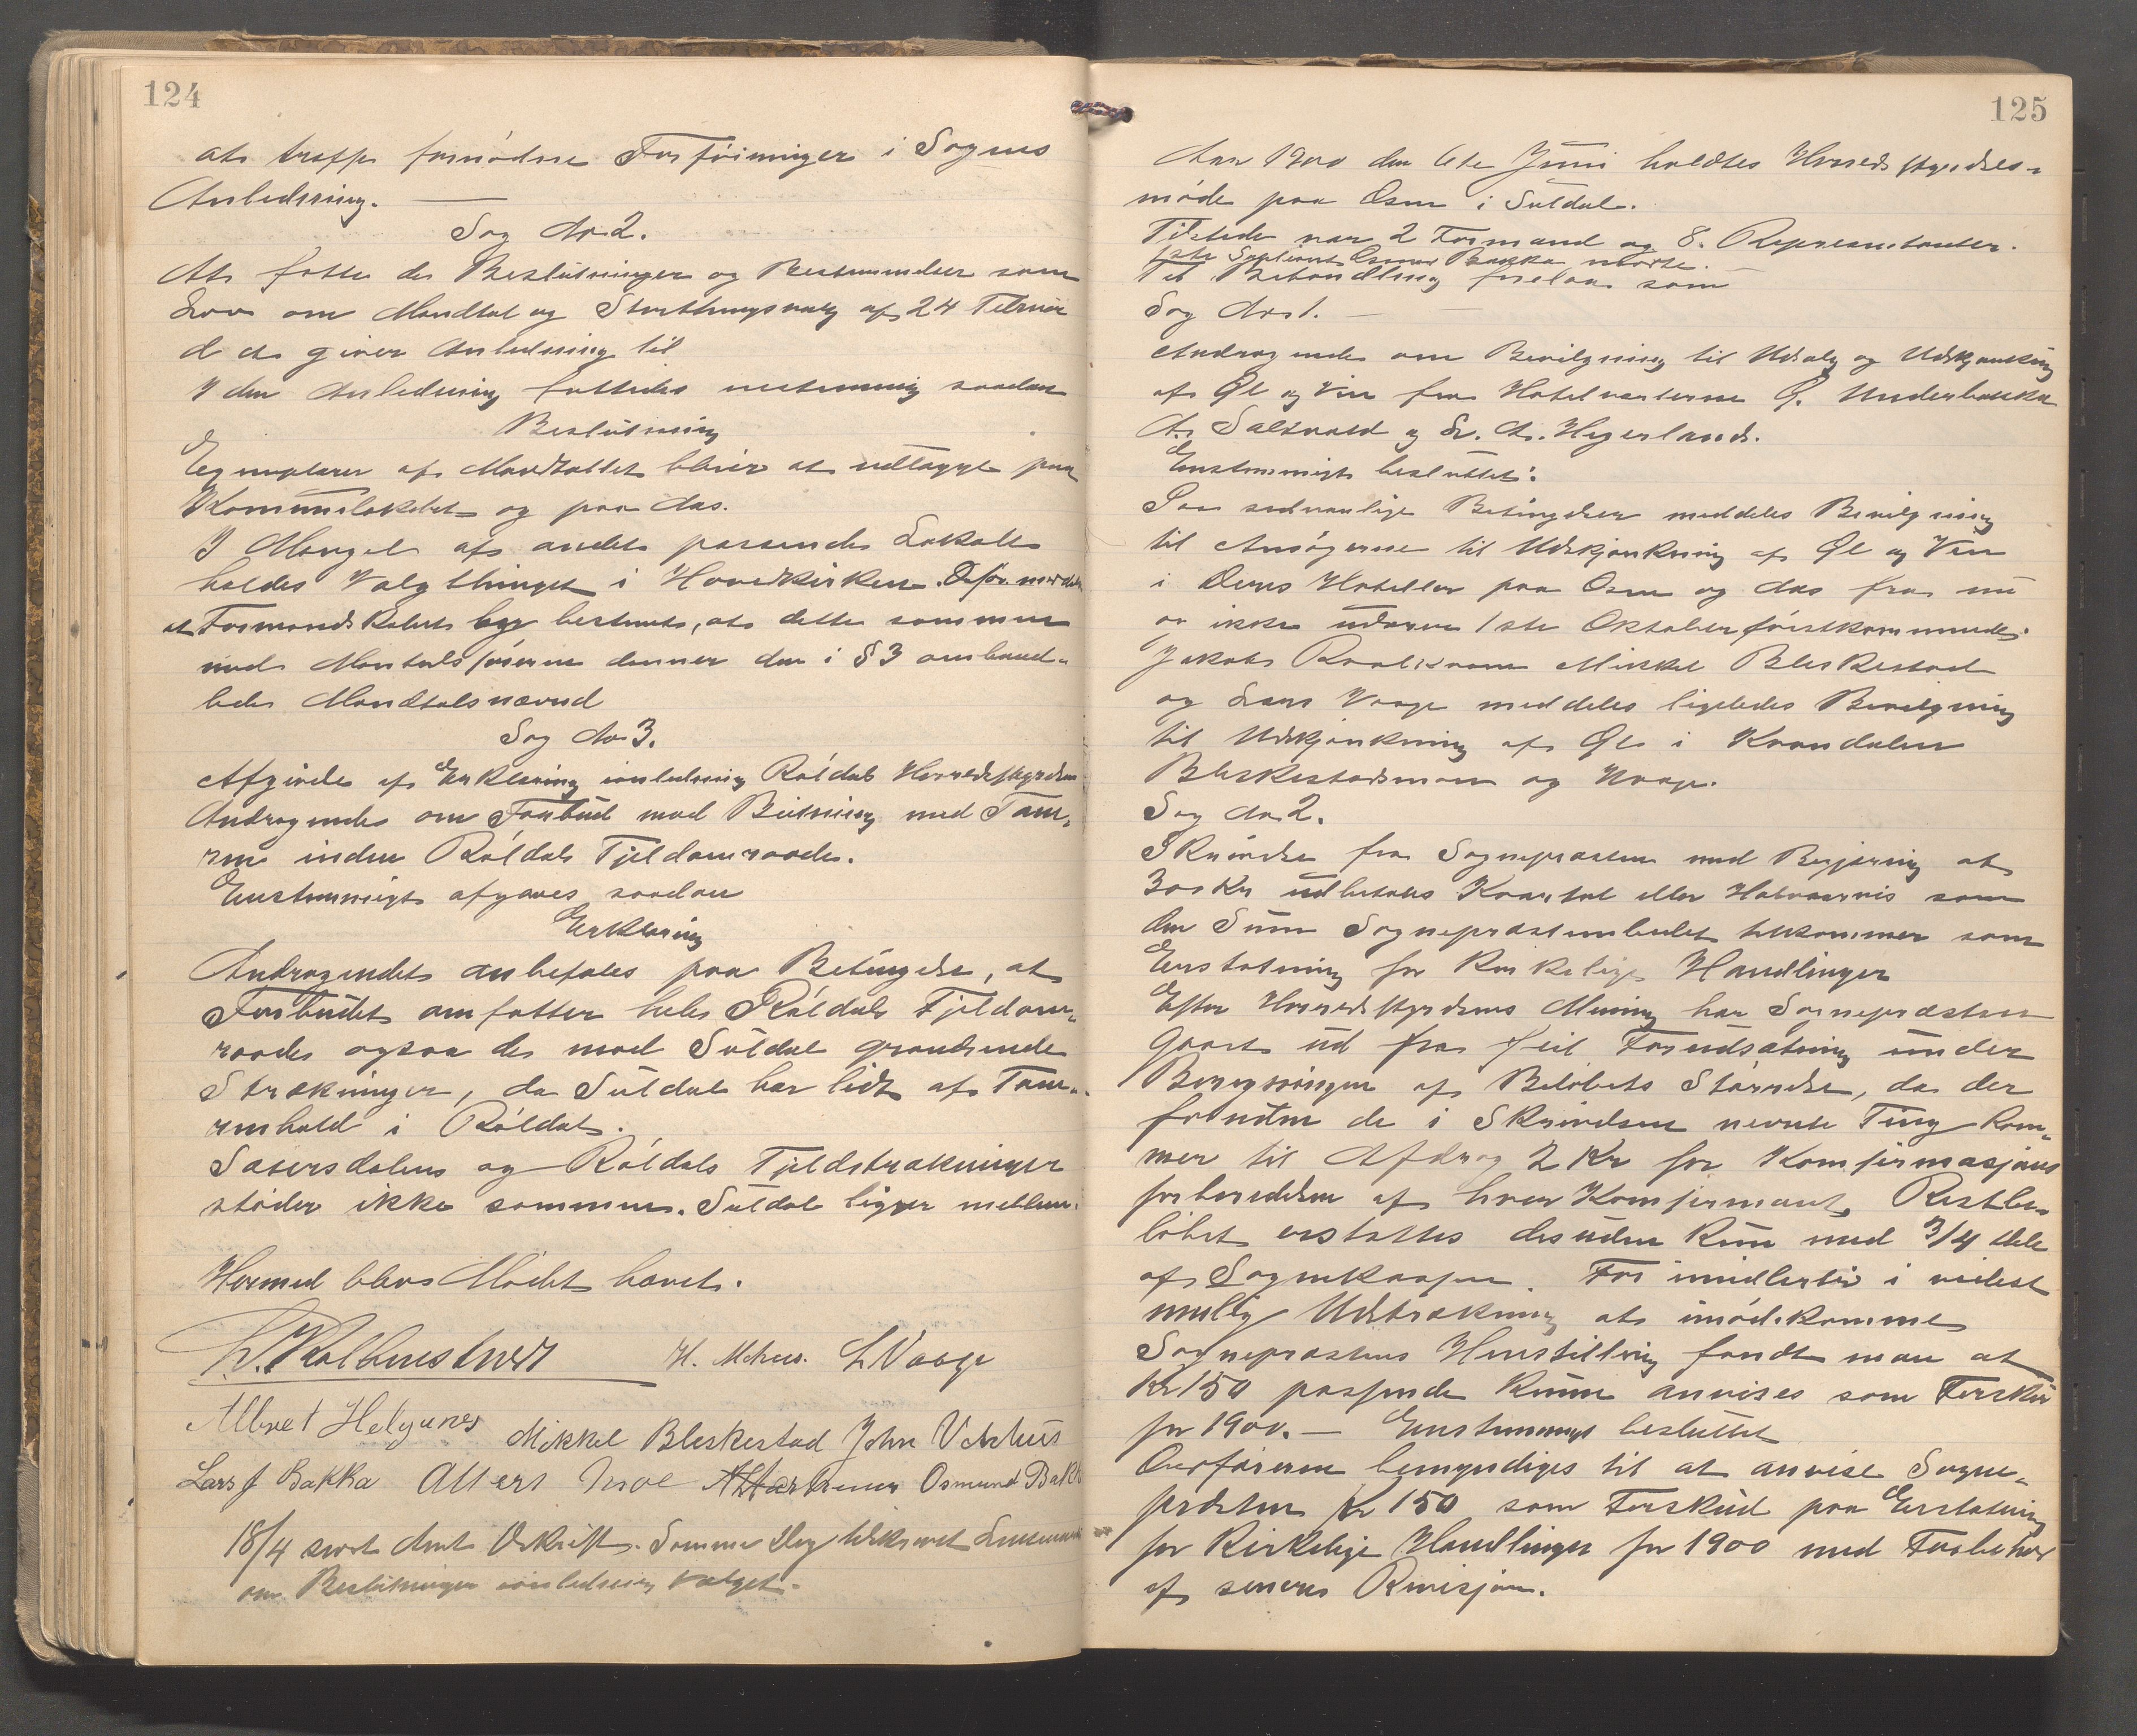 124
at træffe fornødne Forføininger i Sagens
Anledning.
Sag No 2.
At fatte de Beslutninger og Bestemmelser som
Lov om Mandtal og Storthingsvalg af 24 Februar
d. a. giver Anledning til
I den Anledning fattedes enstemmig saadan
Beslutning
Exemplarer af Mandtallet bliver at udlægge paa
Kommunelokalet og paa Næs.
I Mangel af andet passende Lokale
holdes Valgthinget i Hovedkirken.
at Formandskabet bestemte, at dette sammen
med Mantalsføreren danner den i § 3 omhand-
lede Mandtalsnævnd
Sag No 3.
Afgivelse af Erklæring i anledning Røldals Herredsstyrelses
Andragende om Forbud mod Beitning med Tam-
ren inden Røldals Fjeldomraade.
Enstemmigt afgaves saadan
Erklæring
Andragendet anbefales paa Betingelse, at
Forbudet omfatter hele Røldals Fjeldom-
raade ogsaa de mod Suldal grændsende
Strækninger, da Suldal har lidt af Tam-
renhold i Røldal.
Sætersdalens og Røldals Fjeldstrækninger
støder ikke sammen. Suldal ligger mellem.
Hermed blev Mødet hævet.
H. Mehus. L Vaage
Albret Helganes Mikkel Bleskestad John Vetrhus
Lars J Bakka Albert Moe Osmund Bakka
18/4 sendt Amt Udskrift. Samme Dag tilskrevet Lensmanden
om Beslutninger i anledning Valget.
125
Aar 1900 den 6te Juni holdtes Herredsstyrelses-
møde paa Osen i Suldal.
Tilstede var 2 Formænd og 8. Repræsentanter.
1ste Supleant Osmund Bakka mødte.
Til Behandling forelaa som
Sag No 1.
Andragende om Bevilgning til Udsalg og Udskjænkning
af Øl og Vin fra Hotelværterne G. Underbakka
A. Saltvold og Sv. A. Hegerland.
Enstemmigt besluttet:
Paa sedvanlige Betingelser meddeles Bevilgning
til Ansøgerne til Udskjænkning af Øl og Vin
i Deres Hoteller paa Osen og Næs fra nu
og ikke udover 1ste Oktober førstkommende.
Jakob Roalkvam Mikkel Bleskestad
og Lars Vaage meddeles ligeledes Bevilgning
til Udskjænkning af Øl i Kvandalen
Bleskestadmoen og Vaage.
Sag No 2.
Skrivelse fra Sognepræsten med Begjæring at
300 Kr udbetales Kvartal eller Halvaarvis som
den Sum Sognepræstembedet tilkommer som
Erstatning for Kirkelige Handlinger
Efter Herredsstyrelsens Mening har Sognepræsten
gaaet ud fra feil Forudsætning under
Beregningen af Beløbets Størrelse, da der
foruden de i Skrivelsen nevnte Ting kom-
mer til Afdrag 2 Kr for Komfirmasjons
forberedelsen af hver Komfirmant. Restbe-
løbet erstattes desuden kun med 3/4 dele
af Sognekassen. For imidlertid i videst
mulig Udstrækning at imødekomme
Sognepræstens Henstilling fandt man at
Kr 150 passende kunne anvises som Forskud
for 1900. — Enstemmigt besluttet
Ordføreren bemyndiges til at anvise Sogne-
præsten Kr 150 som Forskud paa Erstatning
for Kirkelige Handlinger for 1900 med Forbehold
af senere Revisjon.